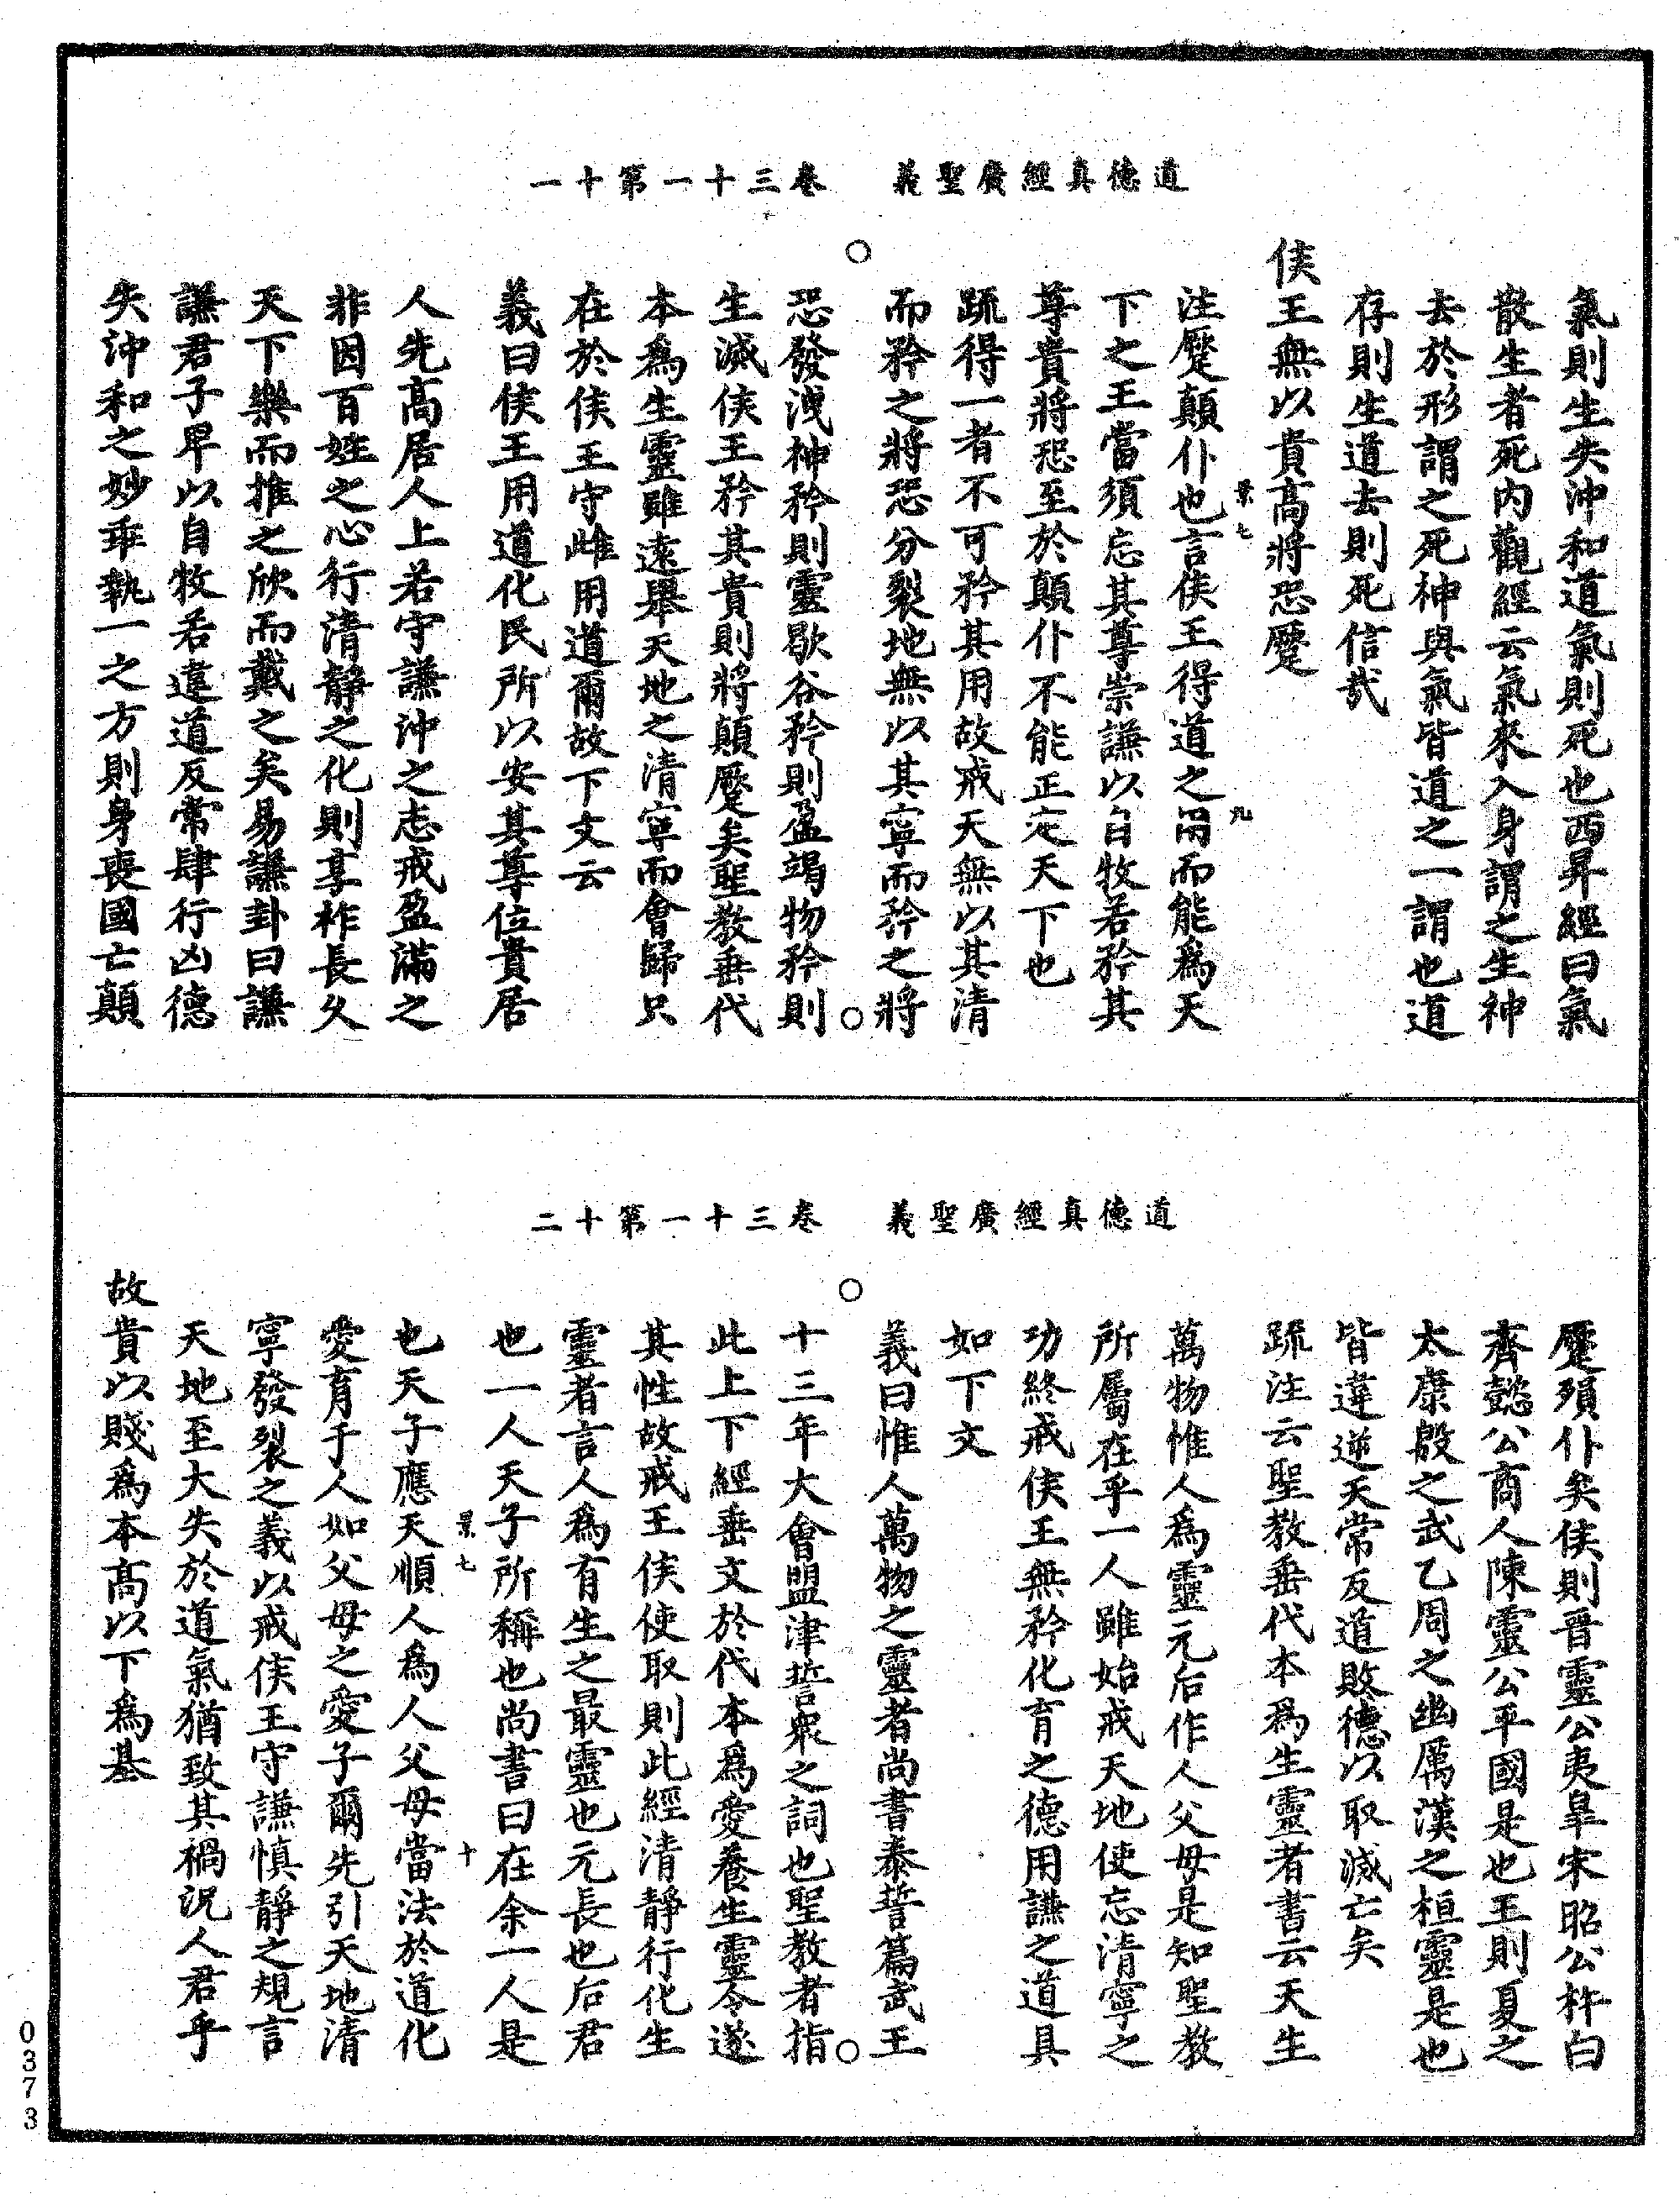 道德真經廣聖義　卷三十一第十一
氣則生失沖和道氣則死也西昇經曰氣
散生者死內觀經云氣來入身謂之生神
去於形謂之死神與氣皆道之一謂也道
存則生道去則死信哉
侯王無以貴高將恐蹷
注蹷顛仆也言侯王得道之用而能爲天
景七　九
下之王當須忘其尊崇謙以自牧若矜其
尊貴將恐至於顛仆不能正定天下也
疏得一者不可矜其用故戒天無以其清
而矜之將恐分裂地無以其寧而矜之將
恐發洩神矜則靈歇谷矜則盈竭物矜則
生滅侯王矜其貴則將顛蹷矣聖教垂代
本爲生靈雖遠舉天地之清寧而會歸只
在於侯王守雌用道爾故下文云
義曰侯王用道化民所以安其尊位貴居
人先高居人上若守謙沖之志戒盈滿之
非因百姓之心行清靜之化則享祚長久
天下樂而推之欣而戴之矣易謙卦曰謙
謙君子卑以自牧若違道反常肆行凶德
失沖和之妙乖執一之方則身喪國亡顛
道德真經廣聖義　卷三十一第十二
蹷殞仆矣侯則晉靈公夷皐宋昭公杵臼
齊懿公商人陳靈公平國是也王則夏之
太康殷之武乙周之幽厲漢之桓靈是也
皆違逆天常反道敗德以取滅亡矣
疏注云聖教垂代本爲生靈者書云天生
萬物惟人爲靈元后作人父母是知聖教
所屬在乎一人雖始戒天地使忘清寧之
功終戒侯王無矜化育之德用謙之道具
如下文
義曰惟人萬物之靈者尚書泰誓篇武王
十三年大會盟津誓衆之詞也聖教者指
此上下經垂文於代本爲愛養生靈令遂
其性故戒王侯使取則此經清靜行化生
靈者言人爲有生之最靈也元長也后君
也一人天子所稱也尚書曰在余一人是
景七　十
也天子應天順人爲人父母當法於道化
愛育于人如父母之愛子爾先引天地清
寧發裂之義以戒侯王守謙慎靜之規言
天地至大失於道氣猶致其禍況人君乎
故貴以賤爲本高以下爲基
0373